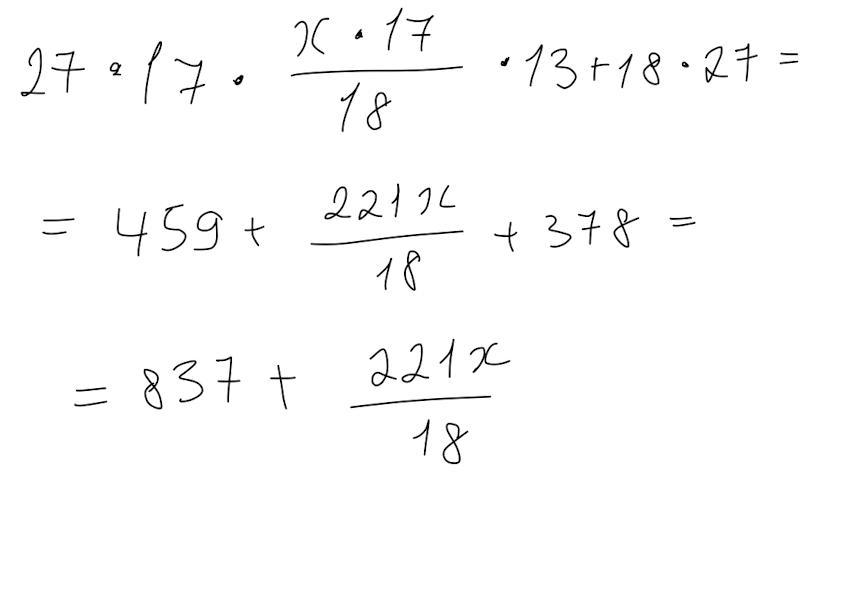 27 · 17 · \frac{x · 17}{18} · 13 + 18 · 27 =
= 459 + \frac{221x}{18} + 378 =
= 837 + \frac{221x}{18}